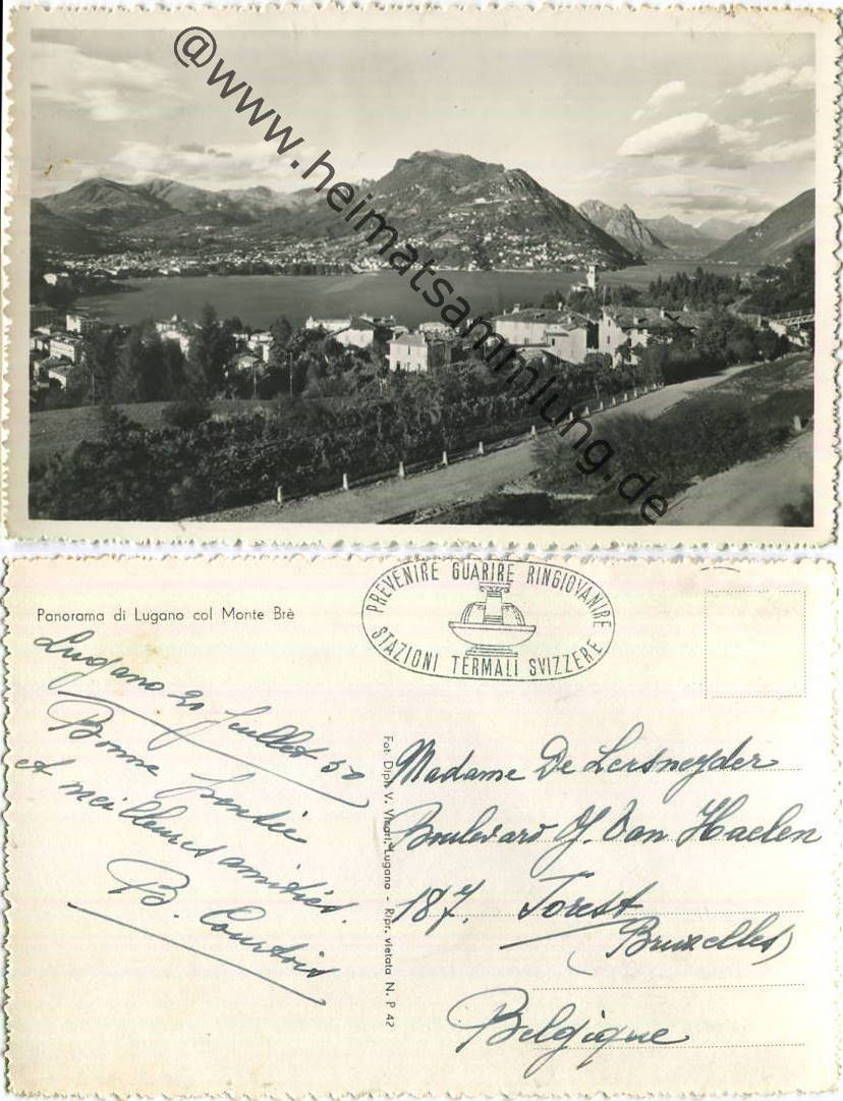 @www.heimatsammlung.de
PREVENIRE GUARIRE RINGIOVANIRE
STAZIONI TERMALI SVIZZERE
Panorama di Lugano col Monte Brè
Lugano 20 Juillet 50
Bonne
et meilleures amitiés.
B. Courtois
Fot. Dipl. V. Vicari, Lugano - Ripr. vietata N. P 42
Madame De Leersnyder
Boulevard G. Van Haelen
187. Forest
(Bruxelles)
Belgique